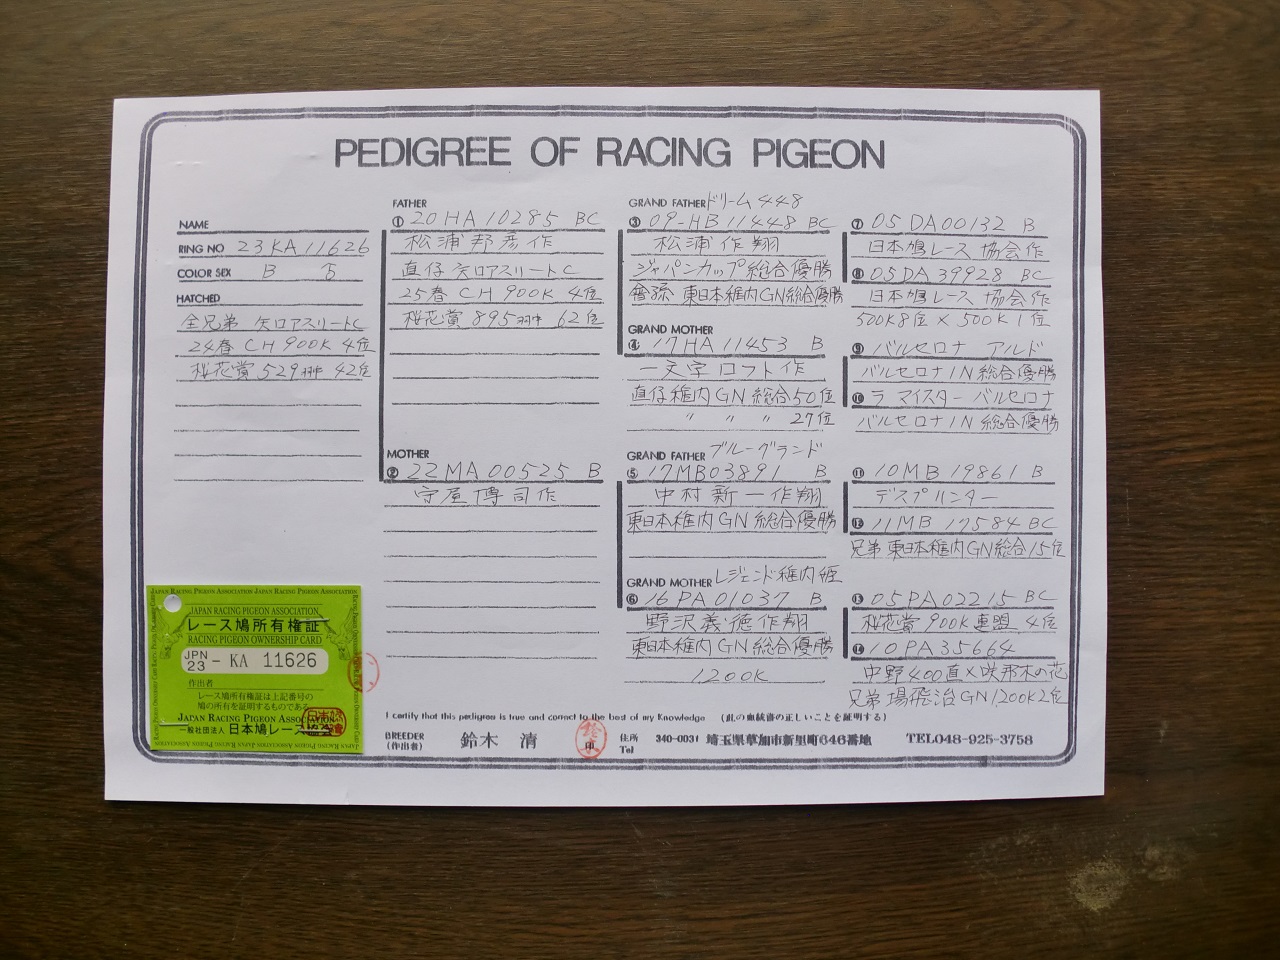 PEDIGREE OF RACING PIGEON
NAME
RING NO 23KA11626
COLOR SEX B
HATCHED
全兄弟 矢口アスリートC
24春 CH 900K 4位
桜花賞 529羽中 42位
FATHER
① 20HA10285 BC
松浦邦彦作
直仔 矢口アスリートC
25春 CH 900K 4位
桜花賞 895羽中 62位
MOTHER
② 22MA00525 B
守屋博司作
GRAND FATHER ドリーム448
③ 09-HB11448 BC
松浦作翔
ジャパンカップ総合優勝
曾孫 東日本稚内GN総合優勝
GRAND MOTHER
④ 17HA11453 B
一文字ロフト作
直仔稚内GN総合50位
〃 〃 〃 27位
GRAND FATHER ブルーグランド
⑤ 17MB03891 B
中村新一作翔
東日本稚内GN総合優勝
GRAND MOTHER レジェンド稚内姫
⑥ 16PA01037 B
野沢義徳作翔
東日本稚内GN総合優勝
1200K
⑦ 05DA00132 B
日本鳩レース協会作
⑧ 05DA39928 BC
日本鳩レース協会作
500K8位×500K1位
⑨ バルセロナ アルド
バルセロナIN総合優勝
⑩ ラマイスターバルセロナ
バルセロナIN総合優勝
⑪ 10MB19861 B
デスプルンター
⑫ 11MB17584 BC
兄弟 東日本稚内GN総合15位
⑬ 05PA02215 BC
桜花賞900K連盟4位
⑭ 10PA35664
中野400直×咲邦木の花
兄弟 場飛治GN1,200K2位
JAPAN RACING PIGEON ASSOCIATION
レース鳩所有権証
RACING PIGEON OWNERSHIP CARD
JPN 23 - KA 11626
作出者
レース鳩所有権証は上記番号の
鳩の所有を証明するものである
JAPAN RACING PIGEON ASSOCIATION
一般社団法人 日本鳩レース協会
I certify that this pedigree is true and correct to the best of my Knowledge (此の血統書の正しいことを証明する)
BREEDER (作出者) 鈴木 清 印 住所 340-0031 埼玉県草加市新里町646番地 TEL048-925-3758
Tel